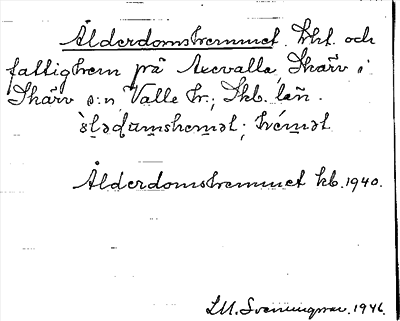 Ålderdomshemmet. Lht. och
fattighem på Axevalla, Skärv i
Skärv s:n, Valle hr., Skb. län.
Ålderdomshemmet kb. 1940.
L.M. Svenungsson. 1946.